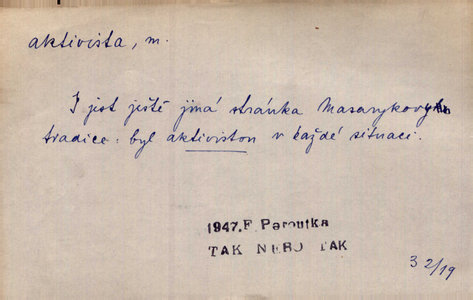 aktivista, m.
I jest ještě jiná stránka Masarykovy
tradice: byl aktivistou v každé situaci.
1947. F. Peroutka
TAK NEBO TAK
3 2/19